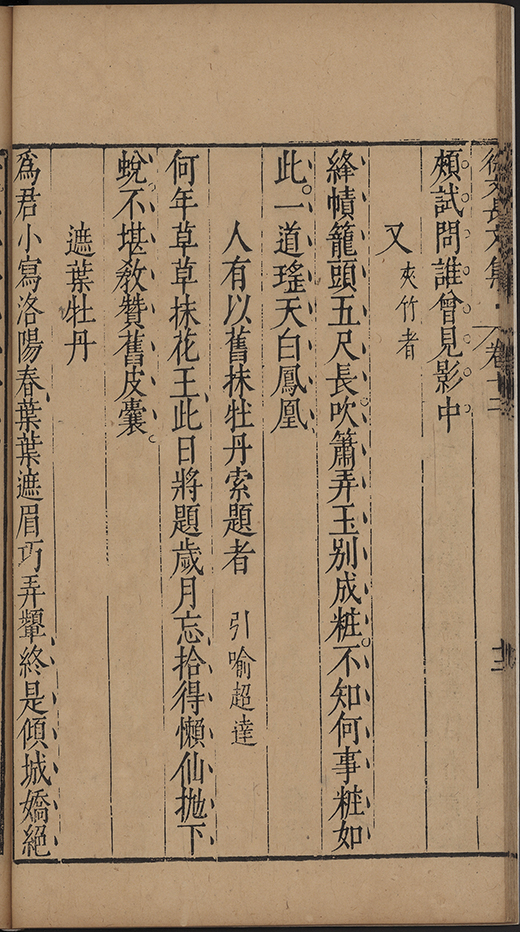 徐文長文集 卷十二 十二
頰試問誰曾見影中
又 夾竹者
絳幘籠頭五尺長吹簫弄玉别成粧不知何事粧如
此一道瑤天白鳳凰
人有以舊抹牡丹索題者 引喻超達
何年草草抹花王此日將題歲月忘拾得懶仙拋下
蛻不堪敎贊舊皮囊
遮葉牡丹
爲君小寫洛陽春葉葉遮眉巧弄顰終是傾城嬌絕